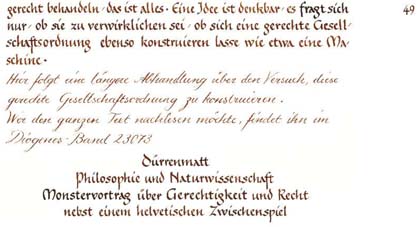 gerecht behandeln, das ist alles. Eine Idee ist denkbar, es fragt sich
49
nur, ob sie zu verwirklichen sei, ob sich eine gerechte Gesell-
schaftsordnung ebenso konstruieren lasse wie etwa eine Ma-
schine.
Hier folgt eine längere Abhandlung über den Versuch, diese
gerechte Gesellschaftsordnung zu konstruieren.
Wer den ganzen Text nachlesen möchte, findet ihn im
Diogenes-Band 23073
Dürrenmatt
Philosophie und Naturwissenschaft
Monstervortrag über Gerechtigkeit und Recht
nebst einem helvetischen Zwischenspiel